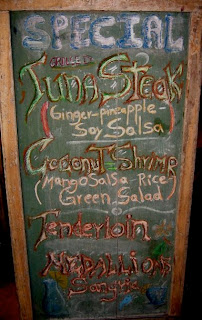 SPECIAL
GRILLED
Tuna Steak
(Ginger-pineapple-
Soy Salsa)
Coconut Shrimp
(Mango Salsa-Rice
Green Salad)
Tenderloin
MEDALLIONS
Sangria